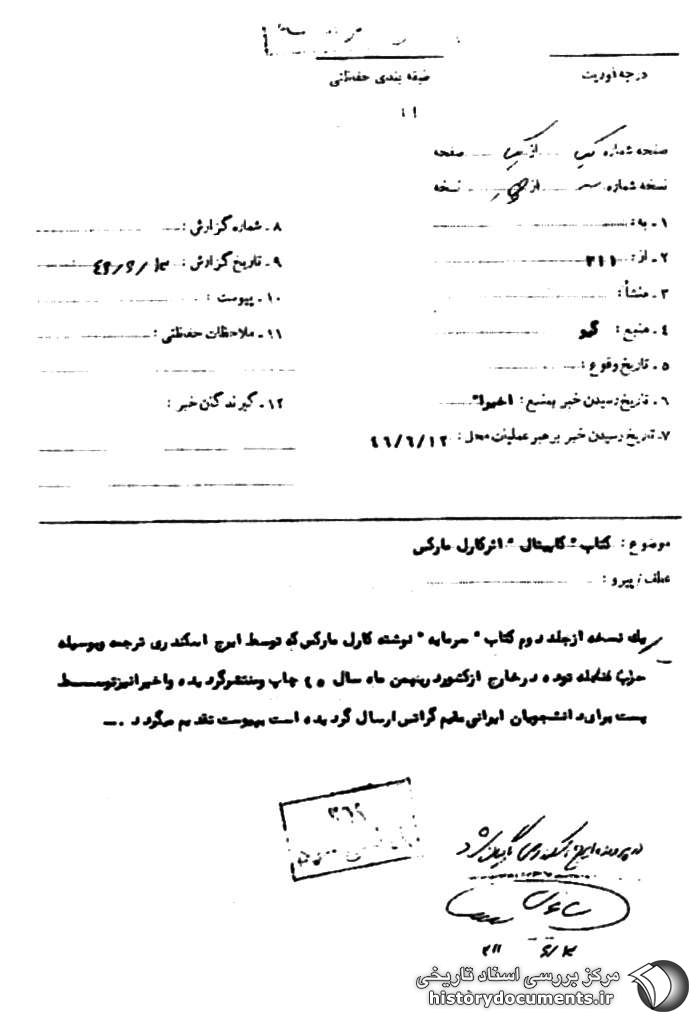 درجه فوریت
طبقه بندی حفاظتی
صفحه شماره یک از یک صفحه
نسخه شماره از نسخه
۱ـ به :
۲ـ از : ۳۱۱
۳ـ منشأ :
۴ـ منبع :
۵ـ تاریخ وقوع :
۶ـ تاریخ رسیدن خبر بمنبع : اخیرا"
۷ـ تاریخ رسیدن خبر برهبر عملیات محل : ۴۶/۶/۱۲
۸ـ شماره گزارش :
۹ـ تاریخ گزارش :
۱۰ـ پیوست :
۱۱ـ ملاحظات حفاظتی :
۱۲ـ گیرندگان خبر :
موضوع : کتاب " کاپیتال " اثر کارل مارکس
عطف / پیرو :
یک نسخه از جلد دوم کتاب " سرمایه " نوشته کارل مارکس که توسط ایرج اسکندری ترجمه وبوسیله
حزب منحله توده در خارج از کشور در بهمن ماه سال چاپ ومنتشر گردیده واخیرا نیز توسط
پست برای دانشجویان ایرانی مقیم گراتس ارسال گردیده است بپیوست تقدیم میگردد .ـ
در پرونده ایرج اسکندری بایگانی شود
۳۱۱
مرکز بررسی اسناد تاریخی
historydocuments.ir